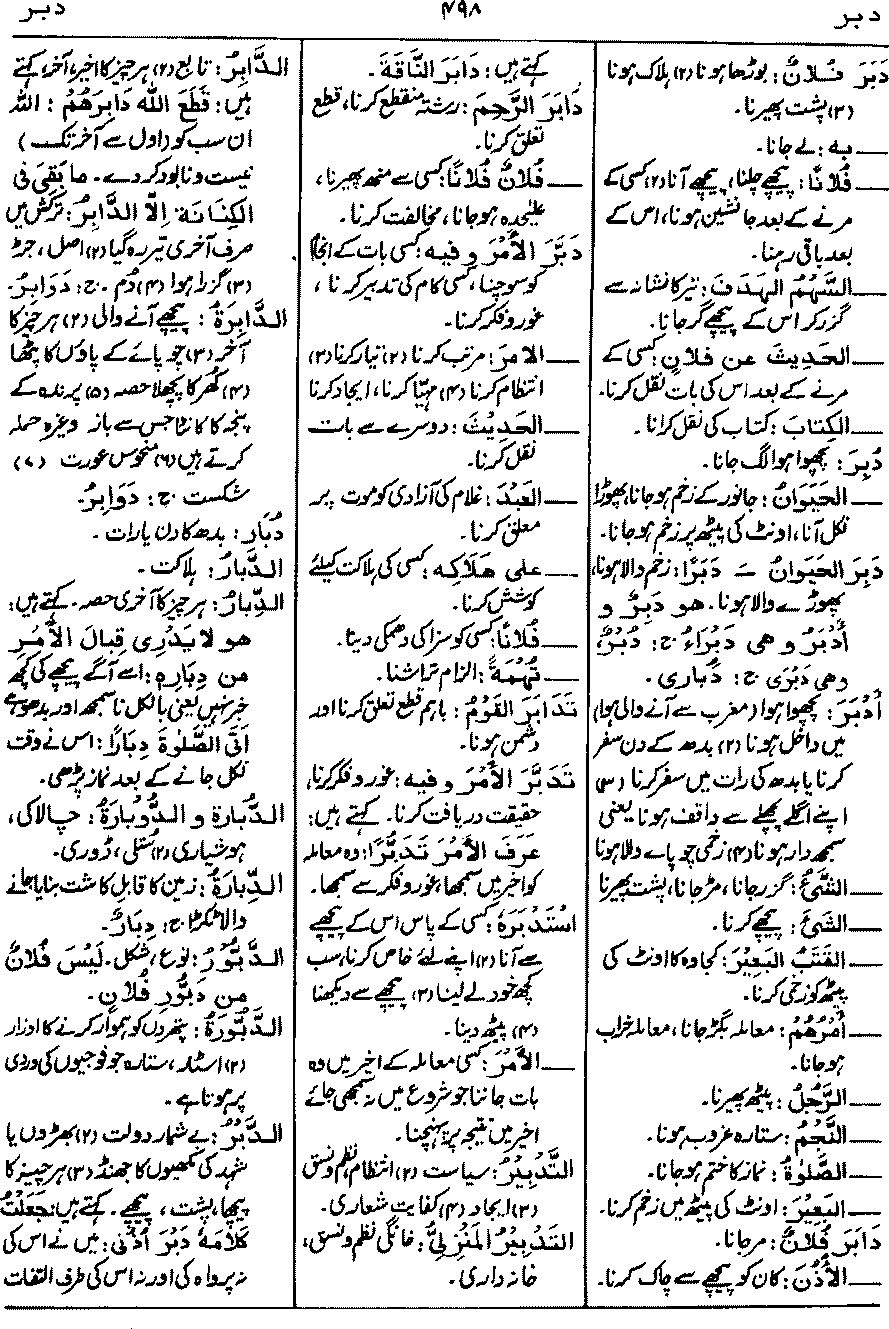 دبر
۴۹۸
دبر
دَبَرَ فُلانٌ: بوڑھا ہونا (۲) ہلاک ہونا
(۳) پشت پھیرنا۔
— بہ: لے جانا۔
— فُلانًا: پیچھے چلنا، پیچھے آنا (۲) کسی کے
مرنے کے بعد جانشین ہونا، اس کے
بعد باقی رہنا۔
— السَّهْمُ الهَدَفَ: تیر کا نشانہ سے
گزر کر اس کے پیچھے گر جانا۔
— الحَدِیثَ عن فلانٍ: کسی کے
مرنے کے بعد اس کی بات نقل کرنا۔
— الکِتابَ: کتاب کی نقل کرانا۔
دُبِرَ: پچھوا ہوا لگ جانا۔
— الحَیَوانُ: جانور کے زخم ہوجانا، پھوڑا
نکل آنا، اونٹ کی پیٹھ پر زخم ہوجانا۔
دَبِرَ الحَیَوانُ ـَ دَبَرًا: زخم والا ہونا،
پھوڑے والا ہونا۔ هو دَبِرٌ و
أَدْبَرُ و هی دَبْرَاءُ ج: دُبْرٌ،
وهی دَبْرَی ج: دَباری۔
أَدْبَرَ: پچھوا ہوا (مغرب سے آنے والی ہوا)
میں داخل ہونا (۲) بدھ کے دن سفر
کرنا یا بدھ کی رات میں سفر کرنا (۳)
اپنے اگلے پچھلے سے واقف ہونا یعنی
سمجھدار ہونا (۴) زخمی چوپاے والا ہونا
— الشَّیْءُ: گزر جانا، مڑ جانا، پشت پھیرنا
— الشَّیْءَ: پیچھے کرنا۔
— القَتَبُ البَعِیْرَ: کجاوہ کا اونٹ کی
پیٹھ کو زخمی کرنا۔
— أَمْرُهُمْ: معاملہ بگڑ جانا، معاملہ خراب
ہوجانا۔
— الرَّجُلُ: پیٹھ پھیرنا۔
— النَّجْمُ: ستارہ غروب ہونا۔
— الصَّلوٰةُ: نماز کا ختم ہوجانا۔
— البَعِیْرَ: اونٹ کی پیٹھ میں زخم کرنا۔
دَابَرَ فُلانٌ: مر جانا۔
— الأُذُنَ: کان کو پیچھے سے چاک کرنا۔
کہتے ہیں: دَابَرَ النَّاقَةَ۔
دَابَرَ الرَّحِمَ: رشتہ منقطع کرنا، قطع
تعلق کرنا۔
— فُلانٌ فُلانًا: کسی سے منھ پھیرنا،
علیحدہ ہوجانا، مخالفت کرنا۔
دَبَّرَ الأَمْرَ و فیه: کسی بات کے انجام
کو سوچنا، کسی کام کی تدبیر کرنا،
غور و فکر کرنا۔
— الامرَ: مرتب کرنا (۲) تیار کرنا (۳)
انتظام کرنا (۴) مہیّا کرنا، ایجاد کرنا
— الحَدِیْثَ: دوسرے سے بات
نقل کرنا۔
— العَبْدَ: غلام کی آزادی کو موت پر
معلق کرنا۔
— علی هَلَاکِه: کسی کی ہلاکت کیلئے
کوشش کرنا۔
— فُلانًا: کسی کو سزا کی دھمکی دینا۔
— تُهْمَةً: الزام تراشنا۔
تَدَابَرَ القَوْمُ: باہم قطع تعلق کرنا اور
دشمن ہونا۔
تَدَبَّرَ الأَمْرَ و فیه: غور و فکر کرنا،
حقیقت دریافت کرنا۔ کہتے ہیں:
عَرَفَ الأَمْرَ تَدَبُّرًا: وہ معاملہ
کو اخیر میں سمجھا، غور و فکر سے سمجھا۔
اسْتَدْبَرَهُ: کسی کے پاس اس کے پیچھے
سے آنا (۲) اپنے لئے خاص کرنا، سب
کچھ خود لے لینا (۳) پیچھے سے دیکھنا
(۴) پیٹھ دینا۔
— الأَمْرَ: کسی معاملہ کے اخیر میں وہ
بات جاننا جو شروع میں نہ سمجھی جائے
اخیر میں نتیجہ پر پہنچنا۔
التَّدْبِیْرُ: سیاست (۲) انتظام، نظم و نسق
(۳) ایجاد (۴) کفایت شعاری۔
التَدْبِیْرُ المَنْزِلیُّ: خانگی نظم و نسق،
خانہ داری۔
الدَّابِرُ: تابع (۲) ہر چیز کا اخیر، آخر، کہتے
ہیں: قَطَعَ اللهُ دَابِرَهُمْ: اللہ
ان سب کو (اول سے آخر تک)
نیست و نابود کردے۔ ما بَقِیَ فی
الکِنَانَةِ اِلَّا الدَّابِرُ: ترکش میں
صرف آخری تیر رہ گیا (۲) اصل، جڑ
(۳) گزرا ہوا (۴) دُم۔ ج: دَوَابِرُ۔
الدَّابِرَةُ: پیچھے آنے والی (۲) ہر چیز کا
آخر (۳) چوپائے کے پاؤں کا پٹھا
(۴) گھر کا پچھلا حصہ (۵) پرندہ کے
پنجہ کا کانٹا جس سے باز وغیرہ حملہ
کرتے ہیں (۶) منحوس عورت (۷)
شکست ج: دَوَابِرُ۔
دُبَار: بدھ کا دن یا رات۔
الدَّبَارُ: ہلاکت۔
الدِّبَارُ: ہر چیز کا آخری حصہ۔ کہتے ہیں:
هو لا یَدْرِی قِبالَ الأَمْرِ
من دِبَارِهِ: اسے آگے پیچھے کی کچھ
خبر نہیں یعنی بالکل ناسمجھ اور بدھو ہے
أَتَی الصَّلوٰةَ دِبَارًا: اس نے وقت
نکل جانے کے بعد نماز پڑھی۔
الدُّبَارة و الدُّوبارَةُ: چالاکی،
ہوشیاری (۲) سُتلی، ڈوری۔
الدِّبارَةُ: زمین کا قابل کاشت بنایا جانے
والا ٹکڑا ج: دِبَارٌ۔
الدَّبُّوْرُ: نوع، شکل۔ لَیْسَ فُلانٌ
من دَبُّورِ فُلانٍ۔
الدَّبُّورَةُ: پتھروں کو ہموار کرنے کا اوزار
(۲) اسٹار، ستارہ جو فوجیوں کی وردی
پر ہوتا ہے۔
الدَّبْرُ: بے شمار دولت (۲) بھڑوں یا
شہد کی مکھیوں کا جھنڈ (۳) ہر چیز کا
پیچھا، پشت، پیچھے۔ کہتے ہیں: جَعَلْتُ
کَلَامَهُ دَبْرَ أُذُنی: میں نے اس کی
نہ پرواہ کی اور نہ اس کی طرف التفات